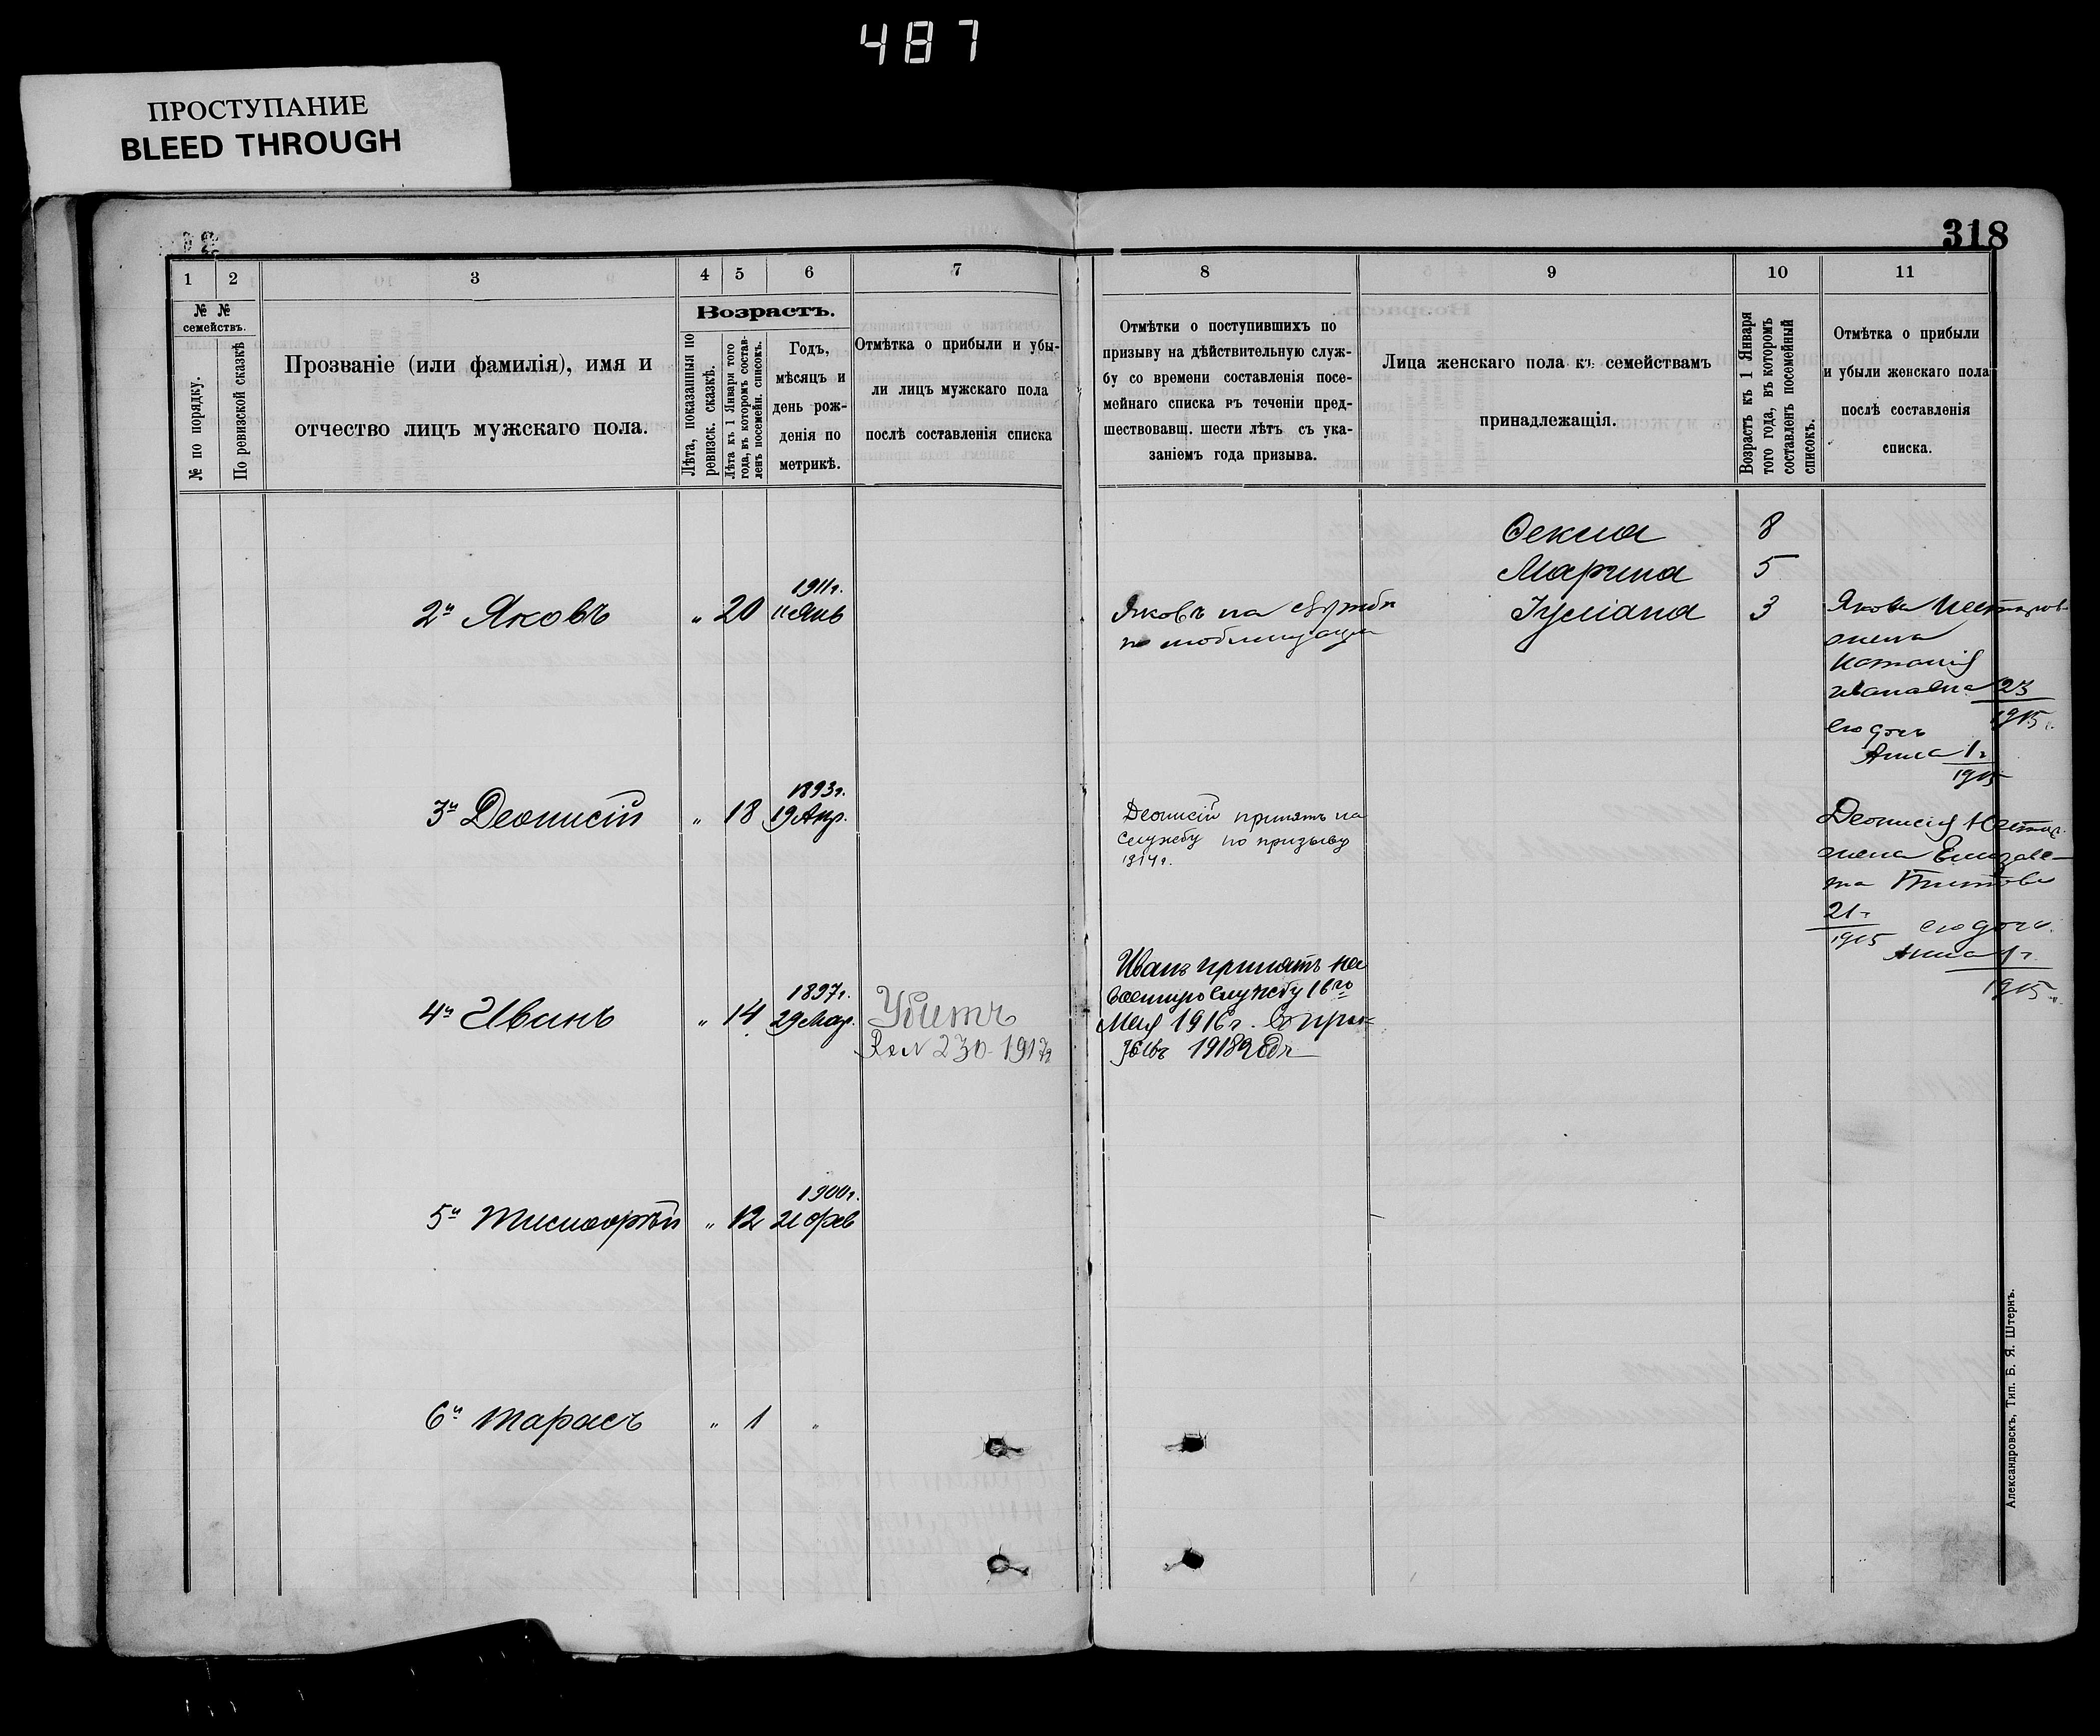 487
ПРОСТУПАНИЕ
BLEED THROUGH
318
1 2 3 4 5 6 7
№ № семействъ.
№ по порядку.
По ревизской сказкѣ
Прозваніе (или фамилія), имя и
отчество лицъ мужскаго пола.
Возрастъ.
Лѣта, показанныя по
ревизск. сказкѣ.
Лѣта къ 1 Января того
года, въ которомъ состав-
ленъ посемейн. списокъ.
Годъ,
мѣсяцъ и
день рож-
денія по
метрикѣ.
Отмѣтка о прибыли и убы-
ли лицъ мужскаго пола
послѣ составленія списка
2й Яковъ " 20 1911г.
11 Янв
3й Деонисій " 18 1893г.
19 Апр.
4й Иванъ " 14 1897г.
29 Мар.
Убитъ
230 1917г
5й Тимофѣй " 12 1900г.
21 фев
6й Тарасъ " 1 "
8 9 10 11
Отмѣтки о поступившихъ по
призыву на дѣйствительную служ-
бу со времени составленія посе-
мейнаго списка въ теченіи пред-
шествовавщ. шести лѣтъ съ ука-
заніемъ года призыва.
Лица женскаго пола къ семействамъ
принадлежащія.
Возрастъ къ 1 Января
того года, въ которомъ
составленъ посемейный
списокъ.
Отмѣтка о прибыли
и убыли женскаго пола
послѣ составленія
списка.
Фекла 8
Марина 5
Іуліана 3
Яковъ на службѣ
по мобилизаціи
Якова
жена
Наталія
Ивановна 23
1915г.
его дочь
Анна 1г
1915
Деонисій принятъ на
службу по призыву
1914г.
Деонисія
жена Елизаве-
та Титова
21г
1915 его дочь
Анна 1г.
1915г.
Иванъ принятъ на
военную службу 16го
Мая 1916г.
1918
Александровскъ, Тип. Б. Я. Штернъ.